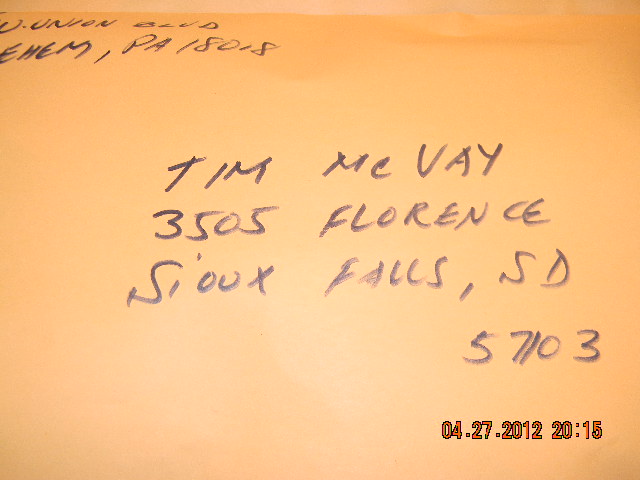 W. UNION BLVD
EHEM, PA 18018
TIM McVAY
3505 FLORENCE
SIOUX FALLS, SD
57103
04.27.2012 20:15